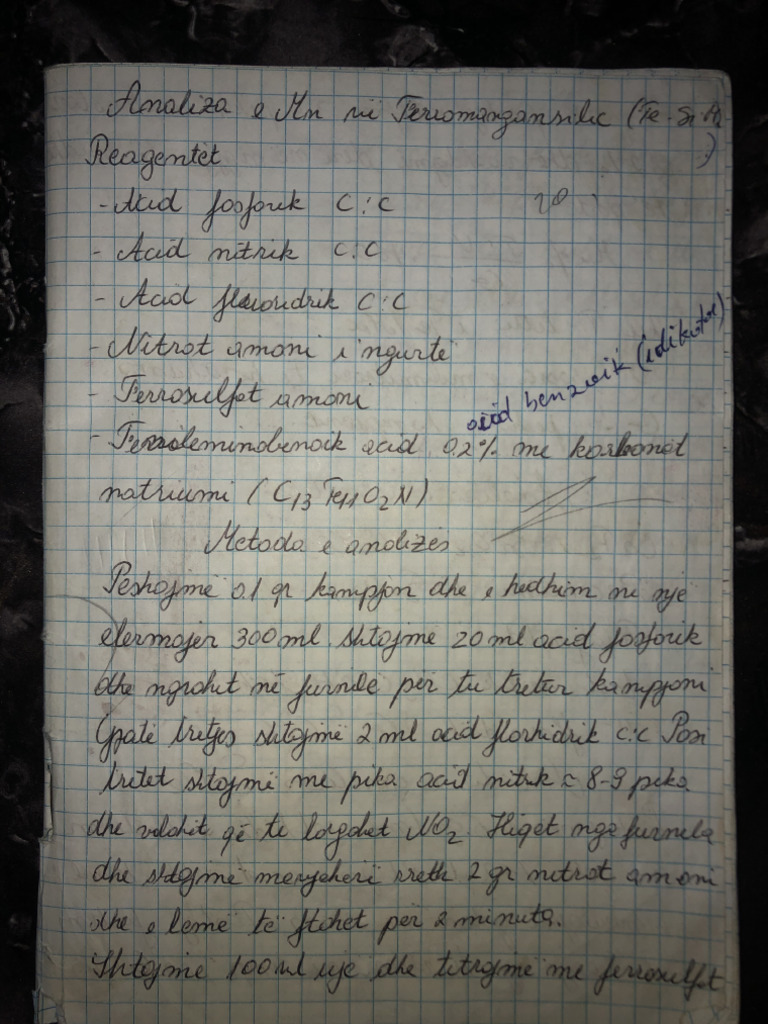 Analiza e Mn në Ferromangansilic (Fe-Si-Mn
)
Reagentet
- Acid fosforik C:C
20
- Acid nitrik C:C
- Acid fluoridrik C:C
- Nitrat amoni i ngurtë
- Ferrosulfat amoni
acid benzoik (idikator)
acid 0.2% me karbonat
natriumi (C13 H11O2N)
Metoda e analizës
Peshojmë 0.1 gr kampjon dhe e hedhim në një
elermajer 300 ml. shtojmë 20 ml acid fosforik
dhe ngrohet në furnelë për tu tretur kampjoni
Gjatë tretjes shtojmë 2 ml acid florhidrik c:c Pasi
tretet shtojmë me pika acid nitrik ≈ 8-9 pika
dhe valohit që te largohet NO2. Hiqet nga furnela
dhe shtojmë menjeherë rreth 2 gr nitrat amoni
dhe e lemë të ftohet për 2 minuta.
Shtojmë 100 ml uje dhe titrojmë me ferrosulfat